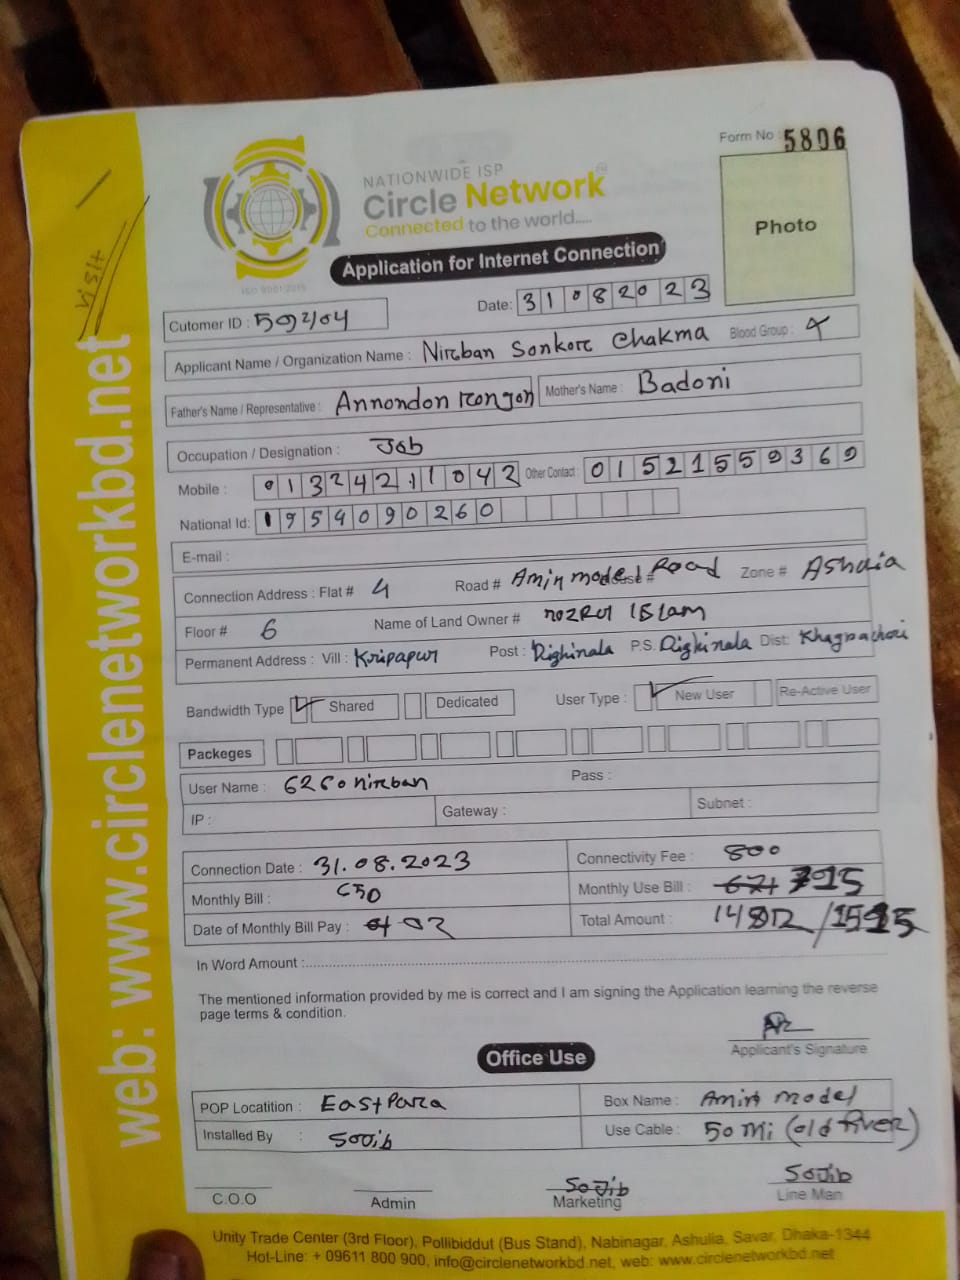 Form No : 5806
NATIONWIDE ISP
Circle Network
Connected to the world.....
Photo
Application for Internet Connection
ISO 9001:2015
Date: 31082023
Cutomer ID :
Applicant Name / Organization Name : Nirban Sonkor Chakma Blood Group :
Father's Name / Representative : Annondon Rongon Mother's Name : Badoni
Occupation / Designation : Job
Mobile : 01324211042 Other Contact : 01521559369
National Id: 1954090260
E-mail :
Connection Address : Flat # 4 Road # Amin model Road Zone #
Floor # 6 Name of Land Owner # nozRul ISLam
Permanent Address : Vill : Kripapur Post : Dighinala P.S. Dighinala Dist: Khagrachori
Bandwidth Type Shared Dedicated User Type : New User Re-Active User
Packeges
User Name : Pass :
IP : Gateway : Subnet :
Connection Date : 31.08.2023 Connectivity Fee : 800
Monthly Bill : Monthly Use Bill : 795
Date of Monthly Bill Pay : Total Amount :
In Word Amount :
The mentioned information provided by me is correct and I am signing the Application learning the reverse
page terms & condition.
Applicant's Signature
Office Use
POP Locatition : East Para Box Name : Amin model
Installed By : SoJib Use Cable : 50 Mi (old fiver)
C.O.O Admin SoJib Marketing SoJib Line Man
Unity Trade Center (3rd Floor), Pollibiddut (Bus Stand), Nabinagar, Ashulia, Savar, Dhaka-1344
Hot-Line: + 09611 800 900, info@circlenetworkbd.net, web: www.circlenetworkbd.net
web: www.circlenetworkbd.net